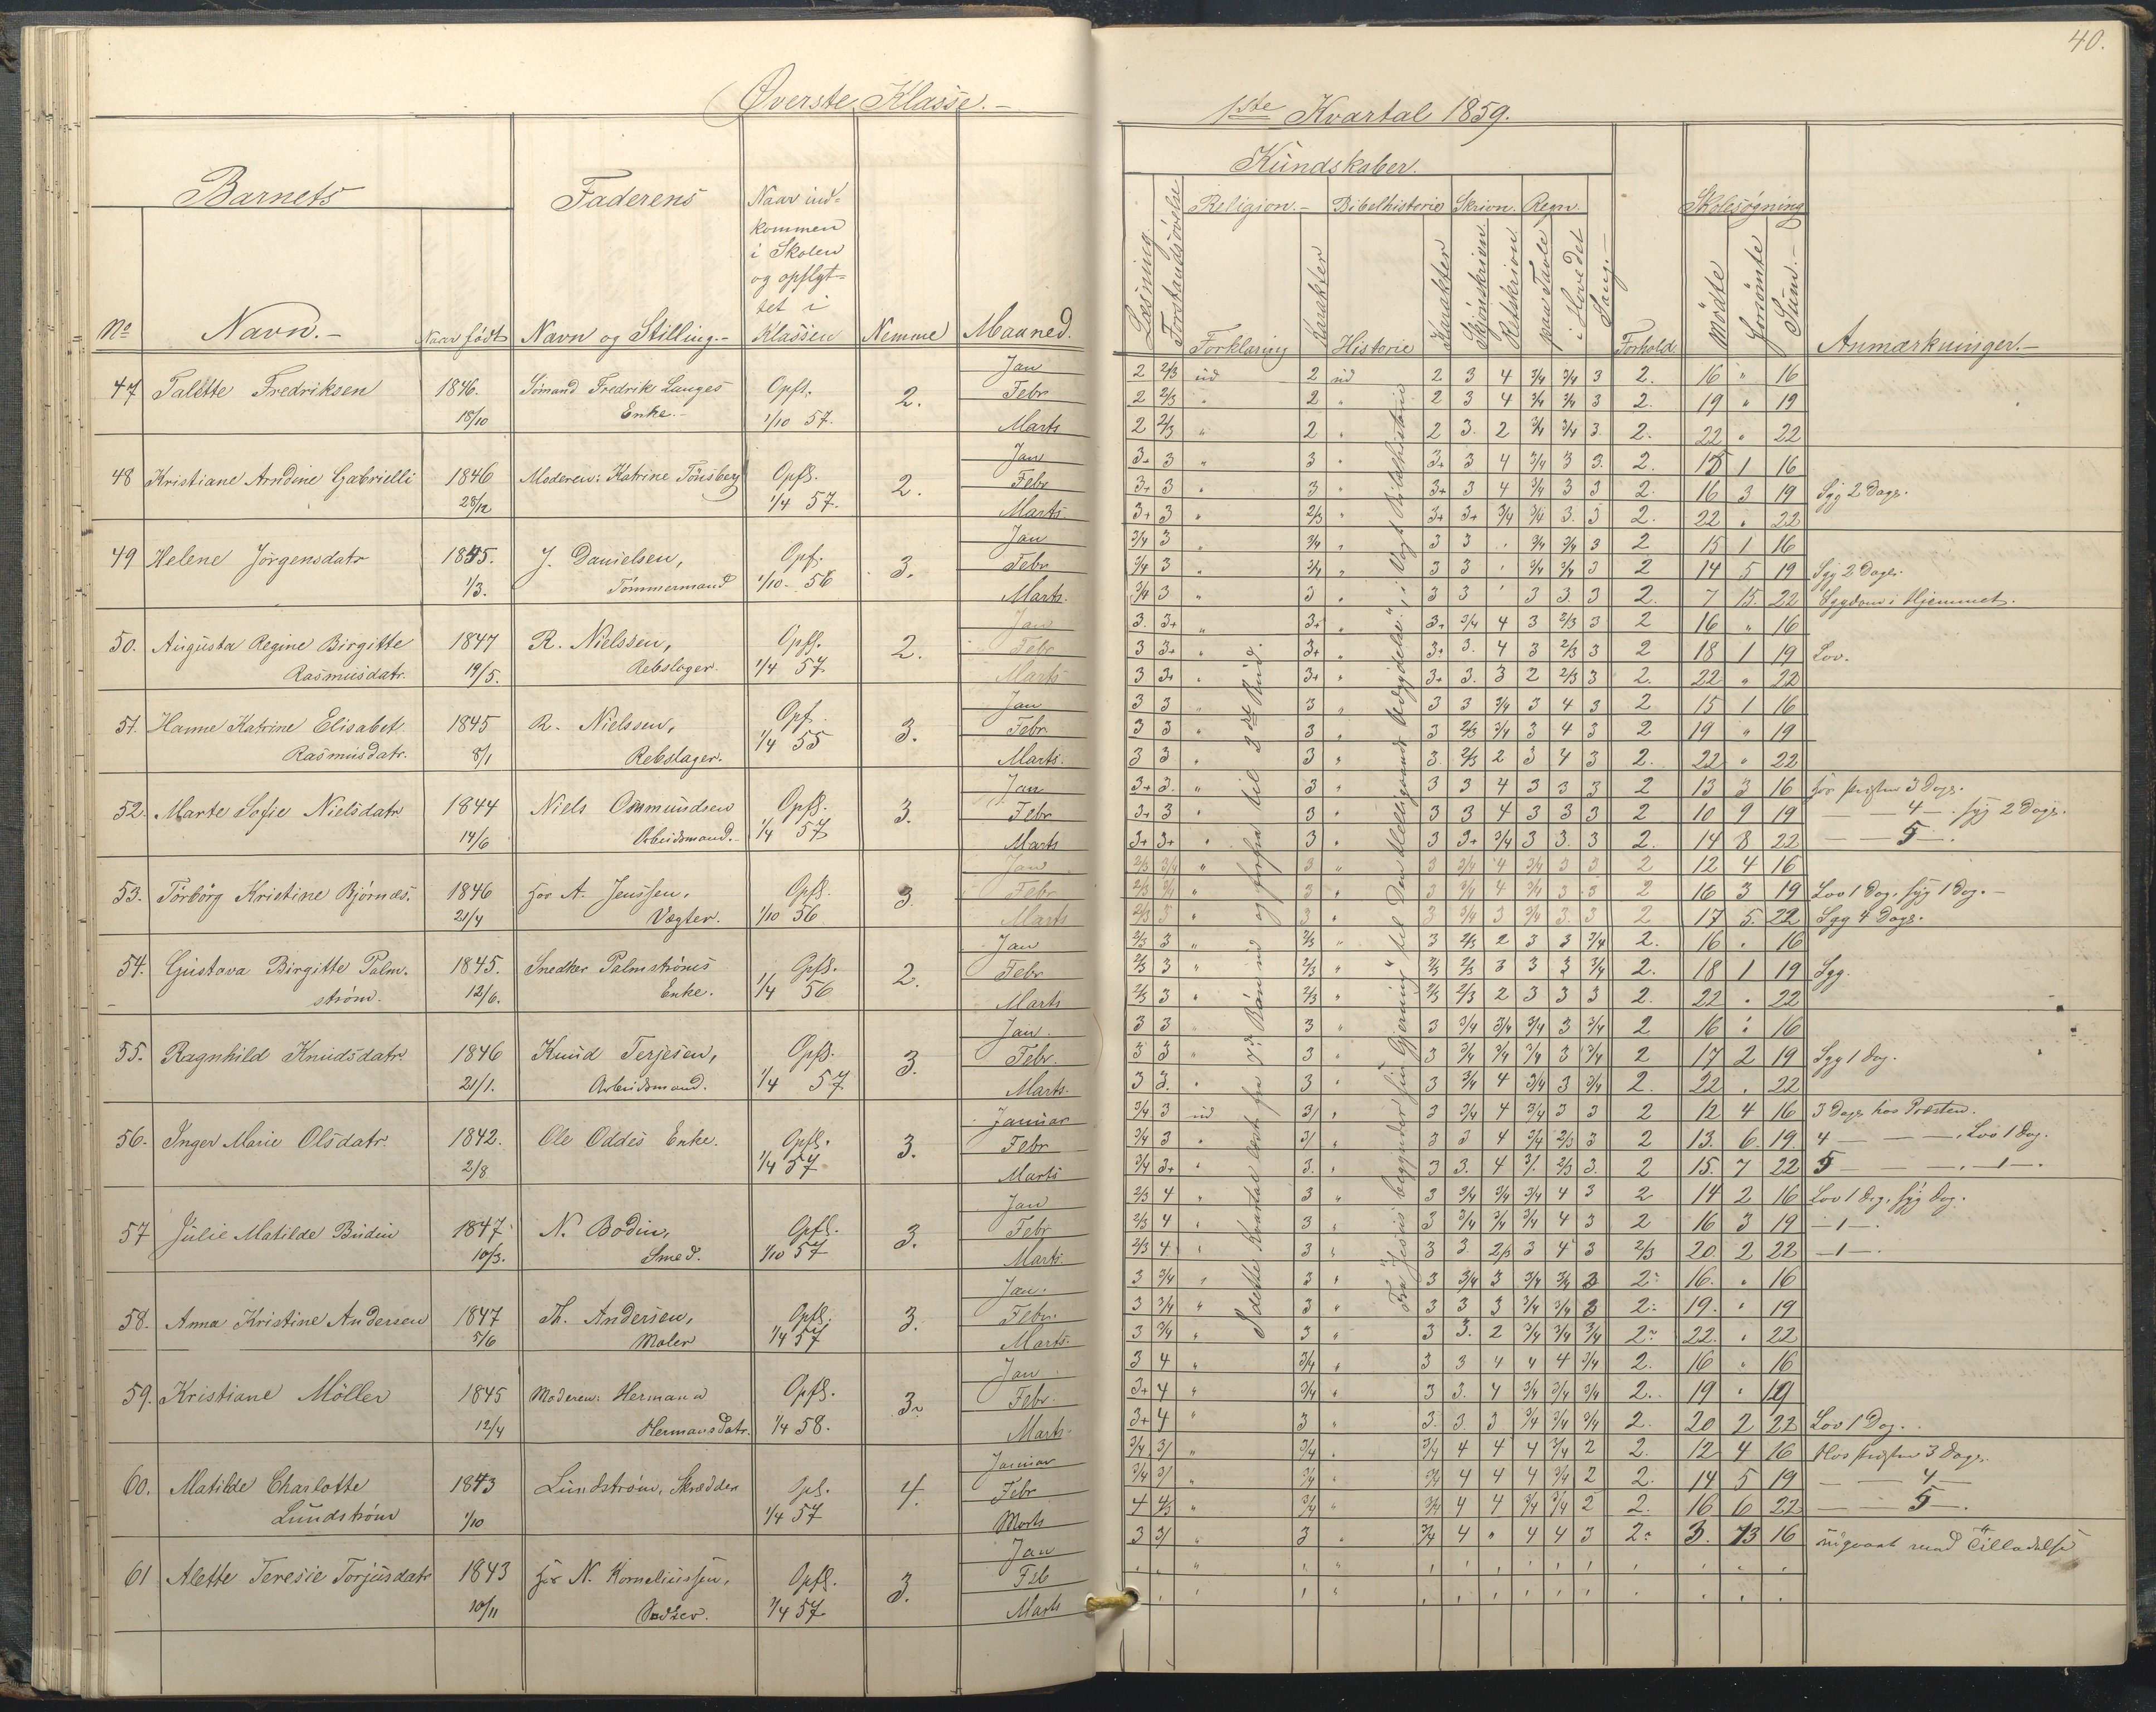 Øverste Klasse.-
Barnets
Faderens
Naar ind-
kommen
i Skolen
og opflyt-
tet i
Klassen
No Navn.- Naar født Navn og Stilling.- Nemme Maaned.
47 Talette Fredriksen 1846. Sømand Fredrik Langes Opfl. 2. Jan
18/10 Enke.- 1/10 57. Febr
Marts
48 Kristiane Arndine Gabrielli 1846 Moderen: Katrine Tönsberg Opfl. 2. Jan
28/12 1/4 57. Febr
Marts.
49 Helene Jörgensdatr 1845. J. Danielsen, Opf. 3. Jan
1/3. Tömmermand 1/10- 56 Febr
Marts.
50. Augusta Regine Birgitte 1847 R. Nielssen, Opfl. 2. Jan
Rasmusdatr. 19/5. Rebslager. 1/4 57. Febr
Marts
51. Hanne Katrine Elisabet 1845 R. Nielssen, Opf. 3. Jan
Rasmusdatr. 8/1 Rebslager. 1/4 55 Febr
Marts.
52. Marte Sofie Nielsdatr 1844 Niels Ommundsen Opfl. 3. Jan
14/6 Arbeidsmand.- 1/4 57 Febr
Marts
53. Törbörg Kristine Björnæs. 1846 hos A. Jenssen, Opfl. 3. Jan
21/4 Vægter. 1/10 56 Febr
Marts
54. Gustava Birgitte Palm- 1845. Snedker Palmströms Opfl. 2. Jan
ström. 12/6. Enke. 1/4 56 Febr
Marts
55. Ragnhild Knudsdatr. 1846 Knud Terjesen, Opfl. 3. Jan.
21/1. Arbeidsmand. 1/4 57 Febr.
Marts.
56. Inger Marie Olsdatr. 1842. Ole Oddes Enke. Opfl. 3. Januar
2/8 1/4 57 Febr
Marts
57 Julie Matilde Budin 1847 N. Bodin, Opfl. 3. Jan
10/3. Smed. 1/10 57 Febr
Marts.
58. Anna Kristine Andersen 1847 Th. Andersen, Opfl. 3. Jan.
5/6 Maler 1/4 57 Febr.
Marts.
59. Kristiane Möller 1845 Moderen: Hermana Opfl. 3. Jan
12/4 Hermansdatr. 1/4 58. Febr.
Marts.
60. Matilde Charlotte 1843 Lundström, Skrædder Opfl. 4. Januar
Lundström 1/10 1/4 57 Febr
Marts
61 Alette Teresie Torjusdatr 1843 hos N. Korneliussen, Opfl. 3. Jan
10/11 1/4 57 Feb
Marts
40.
1ste Kvartal 1859.
Kundskaber.
Religion.- Bibelhistorie Skrivn. Regn. Skolesøgning
Læsning. Forstandsøvelse Forklaring Karakter Historie Karakter Skjönskrivn. Retskrivn. paa Tavle i Hovedet Sang.- Forhold. Mödte Forsömte Sum.- Anmærkninger.-
2 2/3 ud 2 ud 2 3 4 3/4 3/4 3 2. 16 " 16
2 2/3 " 2 " 2 3 4 3/4 3/4 3 2. 19 " 19
2 2/3 " 2 " 2 3. 2 3/4 3/4 3. 2. 22 " 22
3+ 3 " 3 " 3+ 3 4 3/4 3 3. 2. 15 1 16
3+ 3 " 3 " 3+ 3 4 3/4 3 3 2. 16 3 19 Syg 2 Dage.
3+ 3 " 2/3 " 3+ 3+ 3/4 3/4 3. 3 2. 22 " 22
3/4 3 " 3/4 " 3 3 " 3/4 3/4 3 2 15 1 16
3/4 3 " 3/4 " 3 3 " 3/4 3/4 3 2 14 5 19 Syg 2 Dage.
3/4 3 " 3 " 3 3 " 3 3. 3 2. 7 15. 22 Sygdom i Hjemmet.
3. 3+ " 3+ " 3+ 3/4 4 3 2/3 3 2 16 " 16
3 3+ " 3+ " 3+ 3. 4 3 2/3 3 2 18 1 19 Lov.
3 3+ " 3+ " 3+ 3. 3 2 2/3 3 2. 22 " 22
3 3 " 3 " 3 3 3/4 3 4 3 2 15 1 16
3 3 " 3 " 3 2/3 3/4 3 4 3 2 19 " 19
3 3 " 3 " 3. 2/3 2 3 4 3 2. 22 " 22
3+ 3. " 3 " 3 3 4 3 3 3 2 13 3 16 hos Præsten 3 Dage.
3+ 3 " 3 " 3 3 4 3 3 3 2 10 9 19 — — 4 —. syg 2 Dage.
3+ 3+ " 3 " 3 3+ 3/4 3 3. 3 2. 14 8 22 — — 5 —.
2/3 3/4 " 3 " 3 3/4 4 3/4 3 3 2 12 4 16
2/3 3/4 " 3 " 3 3/4 4 3/4 3 3 2 16 3 19 Lov 1 Dag, syg 1 Dag.-
2/3 3 " 3 " 3 3/4 3 3/4 3. 3 2 17 5. 22 Syg 4 Dage.
2/3 3 " 2/3 " 3 2/3 2 3 3 3/4 2. 16 " 16
2/3 3 " 2/3 " 2/3 2/3 3 3 3 3/4 2. 18 1 19 Syg.
2/3 3 " 2/3 " 2/3 2/3 2 3 3 3 2. 22 " 22
3 3 " 3 " 3 3/4 3/4 3/4 3 3/4 2 16 " 16
3 3 " 3 " 3 3/4 3/4 3/4 3 3/4 2 17 2 19 Syg 1 Dag.
3 3. " 3 " 3 3/4 4 3/4 3 3/4 2. 22 . 22
3/4 3 ud 3/ " 3 3/4 4 3/4 3 3 2 12 4 16 3 Dage hos Præsten.
3/4 3 " 3/ " 3 3 4 3/4 2/3 3 2 13. 6. 19 4 — — —, Lov 1 Dag.
3/4 3+ " 3. " 3 3. 4 3/. 2/3 3. 2 15. 7 22 5 — — —. —1—.
2/3 4 " 3 " 3 3/4 3/4 3/4 4 3 2 14 2 16 Lov 1 Dag, syg Dag.
2/3 4 " 3 " 3 3/4 3/4 3/4 4 3 2 16 3 19 —1—.
2/3 4 " 3 " 3 3. 2/3 3 4 3 2/3 20. 2 22 —1—.
3 3/4 " 3 " 3 3/4 3 3/4 3/4 3 2- 16. " 16
3 3/4 " 3 " 3 3 3 3/4 3/4 3 2- 19. " 19
3 3/4 " 3 " 3 3. 2 3/4 3/4 3/4 2- 22. " 22
3 4 " 3/4 " 3 3 4 4 4 3/4 2. 16 " 16
3+ 4 " 3/4 " 3 3. 4 3/4 3/4 3/4 2. 19 " 19
3+ 4 " 3 " 3. 3. 3 3/4 3/4 3/4 2. 20 2 22 Lov 1 Dag.
3/4 3/ " 3/4 " 3/4 4 4 4 3/4 2 2. 12 4 16 Hos Præsten 3 Dage.
3/4 3/ " 3/4 " 3/4 4 4 4 3/4 2 2. 14 5 19 — — 4
4 4/3 " 3/4 " 3/4 4 4 3/4 3/4 2 2. 16 6 22 — — 5 —.
3 3/ " 3 " 3/4 4 " 4 4 3 2- 3. 13 16 udgaaet med Tilladelse
I dette Kvartal læst fra 7de Bön ud og forfra til 2det Bud.
Fra "Jesus begynder sin Gjerning" til "Den Helligaands Udgydelse", i Vogt Bibelhistorie